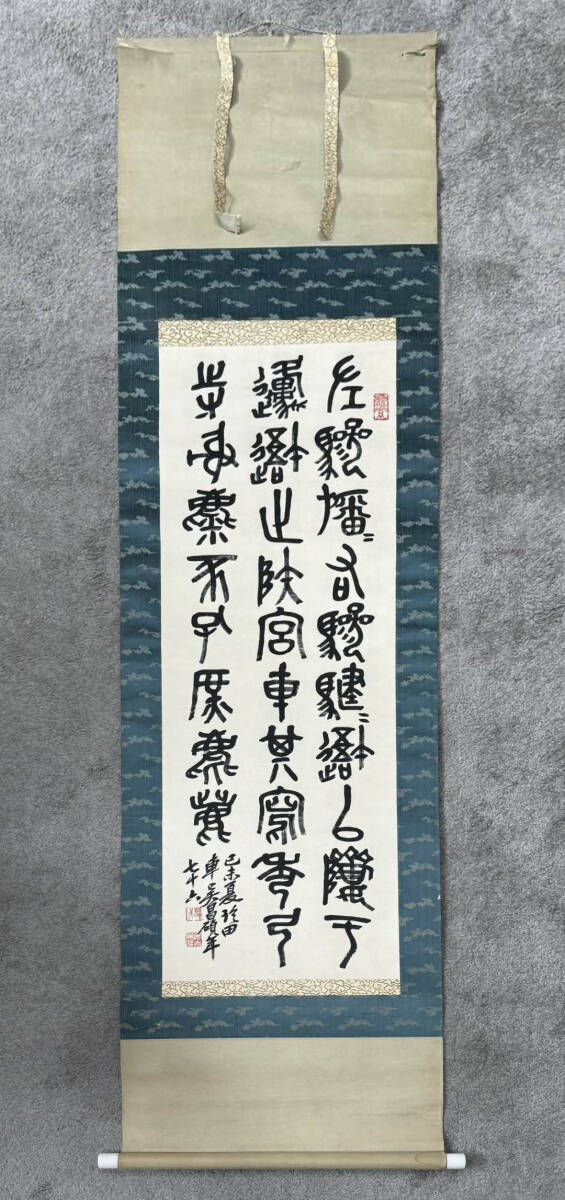 左驂旛=右驂騝=䢦以隮于
邍䢦止陕宮車其寫秀弓
寺射麋豕孔庶麀鹿
己未夏臨田
車吳昌碩年
七十六